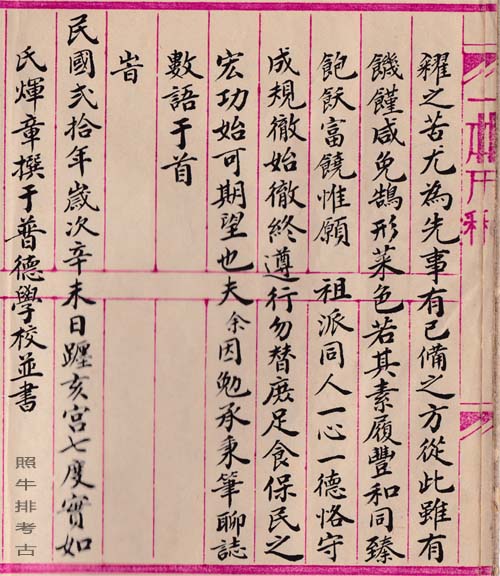 糴之苦尤為先事有已備之方從此雖有
饑饉咸免鵠形菜色若其素履豐和同臻
飽飫富饒惟願 祖派同人一心一德恪守
成規徹始徹終遵行勿替庶足食保民之
宏功始可期望也夫余因勉承秉筆聊誌
數語于首
旹
民國弍拾年歲次辛未日躔亥宮七度實如
氏煇章撰于普德學校並書
照牛排考古